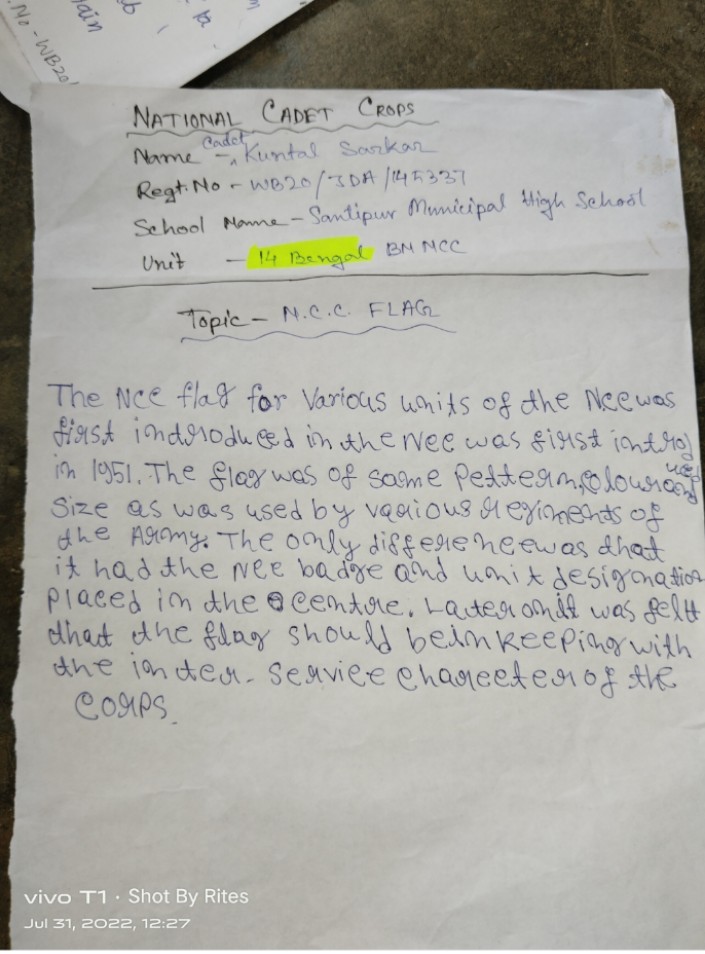 .No-WB20
Main
NATIONAL CADET CROPS
Name - Cadet Kuntal Sarkar
Regt. No - WB20/JDA/145337
School Name - Santipur Municipal High School
Unit - 14 Bengal BN NCC
Topic - N.C.C. FLAG
The NCC flag for Various units of the NCC was
first indroduced in the NCC was first introd
uced
in 1951. The flag was of same Pettern, colour and
Size as was used by various regiments of
the Army. The only difference was that
it had the NCC badge and unit designation
Placed in the centre. Later on it was felt
that the flag should be in keeping with
the inter-service charecter of the
CORPS.
vivo T1 · Shot By Rites
Jul 31, 2022, 12:27